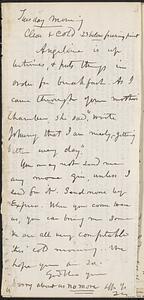 Tuesday morning
Clear & Cold 23 below freezing point
Angeline is up
betimes, & puts things in
order for breakfast. As I
came through your mothers
Chamber, she said, "Write
Johnny that I am nicely, getting
better every day"
You may not send me
any more gin unless I
send for it. Send more by
Express. When you come home
us, you can bring me some
We are all very comfortable
this cold morning. We
hope you are so.
God bless you
worry about us no more